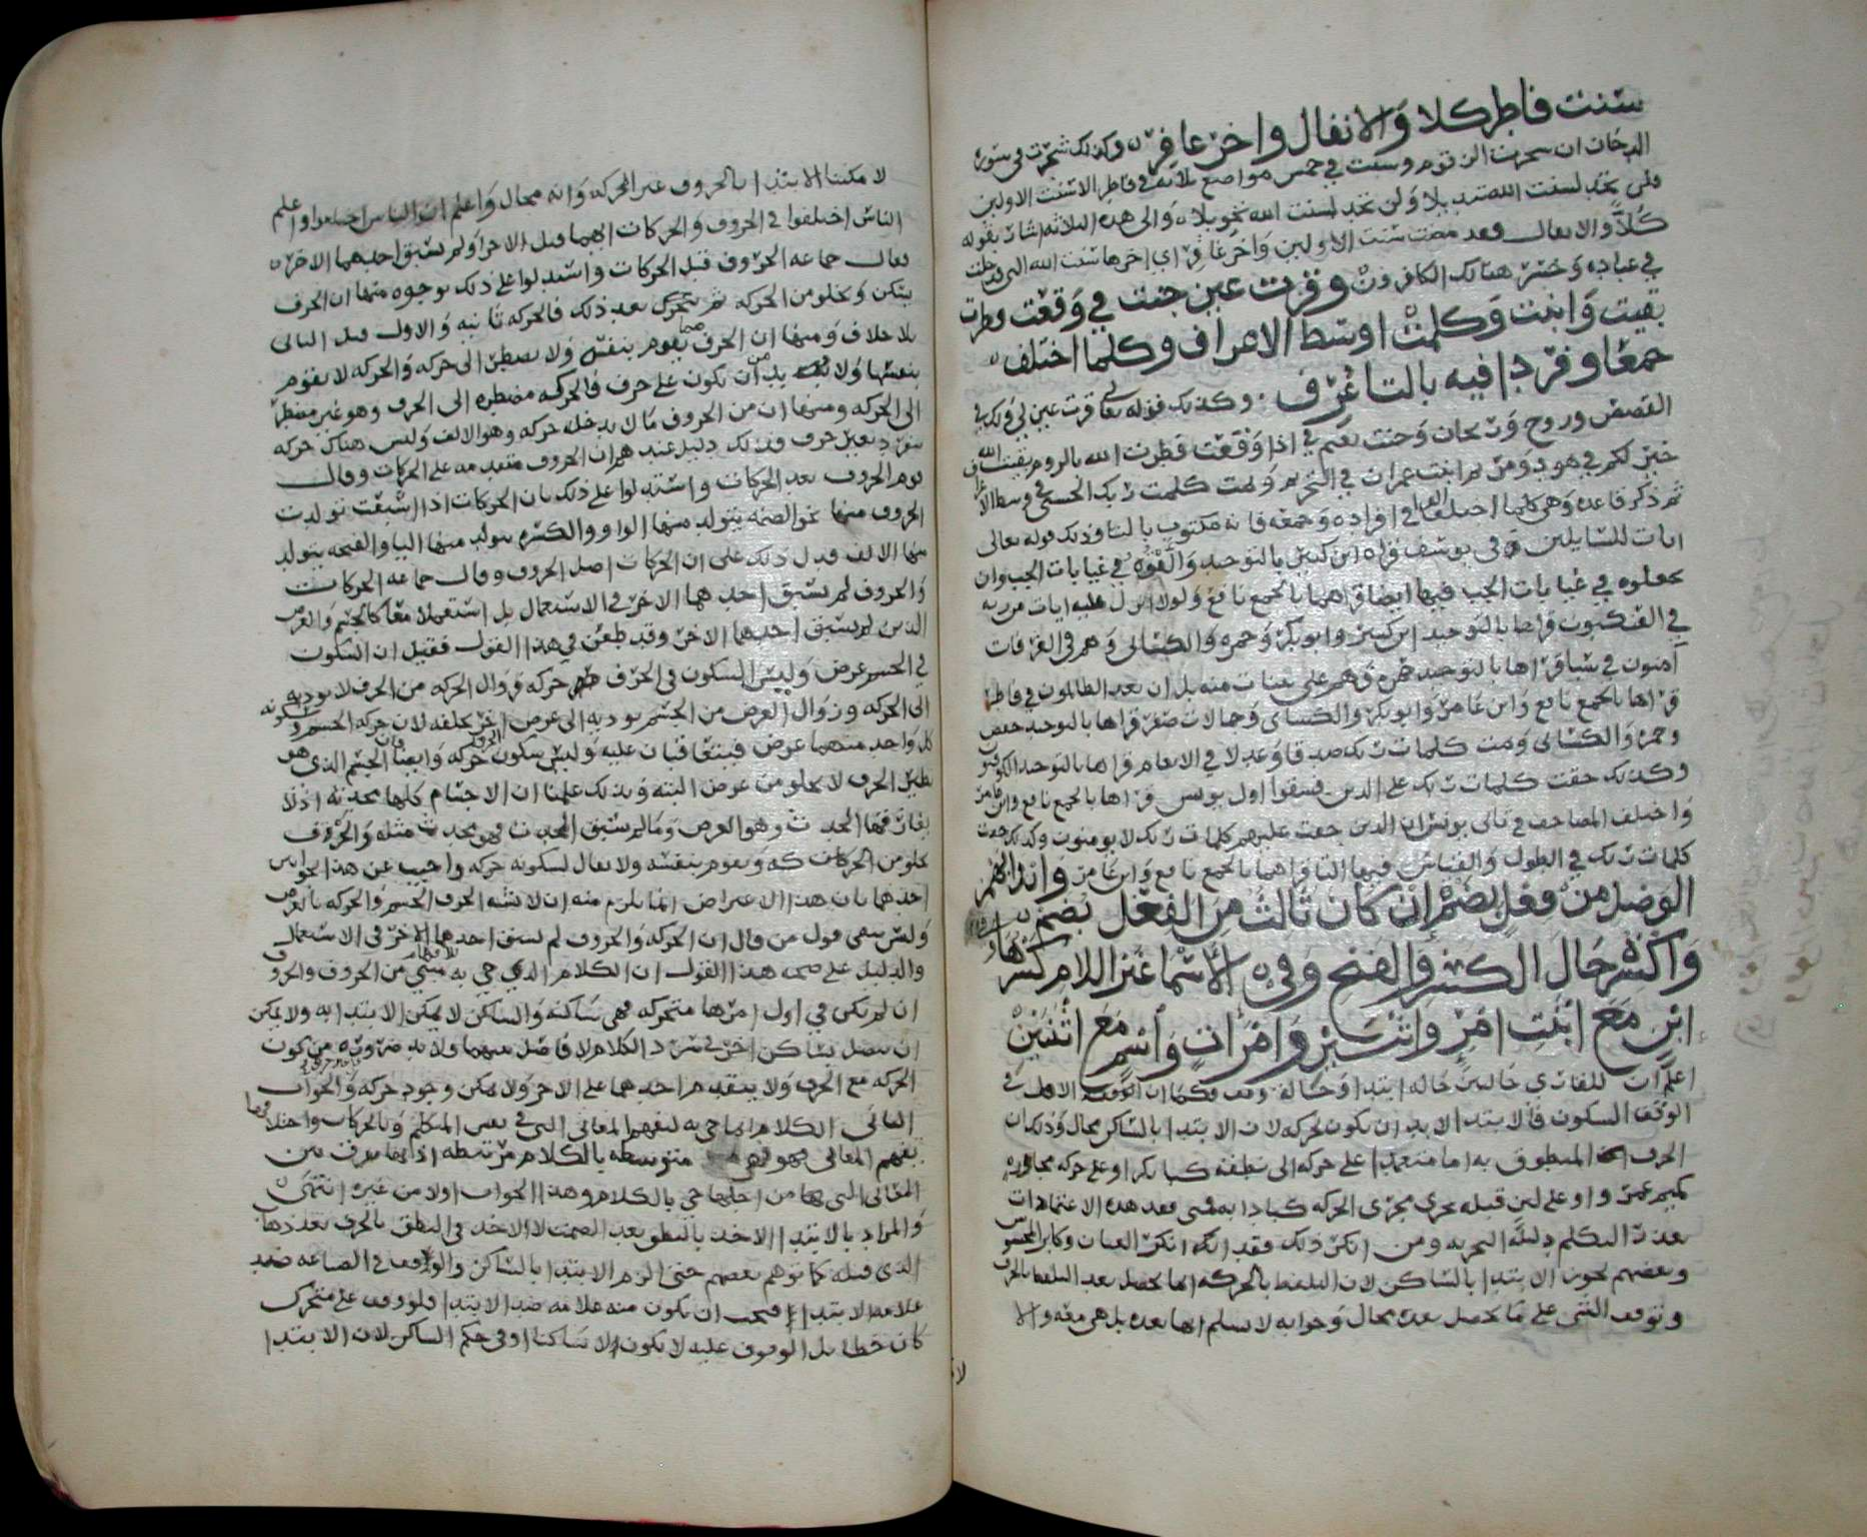 سنت فاطر كلا والانفال واخر غافر وكذلك شجرت في سورة
الدخان ان شجرت الزقوم وسنت في خمس مواضع ثلاثة في فاطر الا سنت الاولين
فلن تجد لسنت الله تبديلا ولن تجد لسنت الله تحويلا والى هذه الثلاثة اشار بقوله
كلا والانفال فقد مضت سنت الاولين واخر غافر اي اخرها سنت الله التي قد خلت
في عباده وخسر هنالك الكافرون وقرت عين جنت في وقعت فطرت
بقيت وابنت وكلمت اوسط الاعراف وكلما اختلف
جمعا وفردا فيه بالتا عرف وكذلك قوله تعالى قرت عين لي ولك في
القصص وروح وريحان وجنت نعيم في اذا وقعت فطرت الله بالروم بقيت الله
خير لكم في هود ومريم ابنت عمران في التحريم وتمت كلمت ربك الحسنى في وسط الاعراف
ثم ذكر قاعدة وهي كلما اختلف القرا في افراده وجمعه فانه مكتوب بالتا وذلك قوله تعالى
ايات للسايلين في يوسف قراه ابن كثير بالتوحيد والقوه في غيابات الجب وان
يجعلوه في غيابات الجب فيها ايضا قراهما بالجمع نافع ولولا انزل عليه ايات من ربه
في العنكبوت قراها بالتوحيد ابن كثير وابو بكر وحمزه والكسائى وهم في الغرفات
آمنون في سبا قراها بالتوحيد حمزه فهم على بينات منه بل ان يعد الظالمون في فاطر
قراها بالجمع نافع وابن عامر وابو بكر والكساى وجمالات صفر قراها بالتوحيد حفص
وحمزه والكسائى وتمت كلمات ربك صدقا وعدلا في الانعام قراها بالتوحيد الكوفيون
وكذلك حقت كلمات ربك على الذين فسقوا اول يونس قراها بالجمع نافع وابن عامر
واختلف المصاحف في ثانى يونس ان الذين حقت عليهم كلمات ربك لا يومنون وكذلك حقت
كلمات ربك في الطول والقياس فيهما التا قراهما بالجمع نافع وابن عامر وابدا بهمز
الوصل من فعل بضم ان كان ثالث من الفعل يضم
واكسره حال الكسر والفتح وفي الاسما غير اللام كسرها
ابن مع ابنت امرئ واثنين وامرات واسم مع اثنتين
اعلم ان للقاري حالين حاله ابتدا وحالة وقف فكما ان الوقف الاصل في
الوقف السكون فالابتدا لا بد ان يكون بحركه لان الابتدا بالساكن محال وذلك ان
الحرف المنطوق به اما معتمد على حركه في نطقه كبا بكر او على حركه مجاوره
كميم عمرو او على لين قبله يجري مجرى الحركه كبا دابه فمتى فقد هذه الاعتمادات
تعذر التكلم دليله التجربه ومن انكر ذلك فقد انكر العيان وكابر المحسوس
وبعضهم يجوز الابتدا بالساكن لان التلفظ بالحركه انما يحصل بعد التلفظ بالحرف
وتوقف الشي على ما يحصل بعده محال وجوابه لا نسلم انها بعده بل هي معه والا
لا
لا مكننا الابتدا بالحروف غير المحركه وانه محال واعلم ان الناس اختلفوا واعلم
الناس اختلفوا في الحروف والحركات ايهما قبل الاخر او لم يسبق احدهما الاخر
فقال جماعه الحروف قبل الحركات واستدلوا على ذلك بوجوه منها ان الحرف
يسكن ويخلو من الحركه ثم يتحرك بعد ذلك فالحركه ثانيه والاول قبل الثانى
بلا خلاف ومنها ان الحرف يقوم بنفسه ولا يضطر الى حركه والحركه لا تقوم
بنفسها ولا بد من ان تكون على حرف فالحركه مضطره الى الحرف وهو غير مضطر
الى الحركه ومنها ان من الحروف ما لا يدخله حركه وهو الالف وليس هناك حركه
تنفرد بغير حرف فذلك دليل عندهم ان الحروف متقدمه على الحركات وقال
قوم الحروف بعد الحركات واستدلوا على ذلك بان الحركات اذا اشبعت تولدت
الحروف منها نحو الضمه يتولد منها الواو والكسره يتولد منها اليا والفتحه يتولد
منها الالف فدل ذلك على ان الحركات اصل الحروف وقال جماعه الحركات
والحروف لم يسبق احدهما الاخر في الاستعمال بل استعملا معا كالجسم والعرض
الذين لم يسبق احدهما الاخر وقد طعن في هذا القول فقيل ان السكون
في الجسم عرض وليس السكون في الحرف حركه فزوال الحركه من الحرف لا يوديه
الى الحركه وزوال العرض من الجسم يوديه الى عرض اخر يخلفه لان حركه الجسم وسكونه
كل واحد منهما عرض فيتعاقبان عليه وليس سكون الحرف حركه وايضا فان الجسم الذي هو
نظير الحرف لا يخلو من عرض البته وبذلك علمنا ان الاجسام كلها محدثه اذ لا
يفارقها المحدث وهو العرض وما لم يسبق المحدث فهو محدث مثله والحرف
يخلو من الحركات كه ويقوم بنفسه ولا يقال لسكونه حركه واجيب عن هذا الجوابين
احدهما بان هذا الاعتراض انما يلزم منه ان لا يشبه الحرف الجسم والحركه بالعرض
وليس ينفى قول من قال ان الحركه والحروف لم يسبق احدهما الاخر في الاستعمال
والدليل على صحه هذا القول ان الكلام الذي جي به للافهام مبني من الحروف والحروف
ان لم تكن في اول امرها متحركه فهي ساكنه والساكن لا يمكن الابتدا به ولا يمكن
ان يتصل بساكن اخر في سرد الكلام لا فاصل بينهما ولا بد ضروره من كون
الحركه مع الحرف ولا يتقدم احدهما على الاخر ولا يمكن وجود حركه والجواب
الثانى الكلام انما جي به لتفهم المعانى التى في نفس المتكلم وبالحركات واختلافها
يفهم المعانى فهو متوسطه بالكلام مرتبطه اذ انها يفرق بين
المعانى التى بها من اجلها جي بالكلام وهذا الجواب اولا من غيره انتهى
والمراد بالابتدا الاخذ بالنطق بعد الصمت لا الاخذ في النطق بالحرف بعد ذهاب
الذى قبله كما توهم بعضهم حتى الزم الابتدا بالساكن والوقف في الصناعه ضد
علامه الابتدا فيجب ان يكون منه علامه ضد الابتدا فلو وقف على متحرك
كان خطا بل الوقوف عليه لا يكون الا ساكنا او في حكم الساكن لان الابتدا